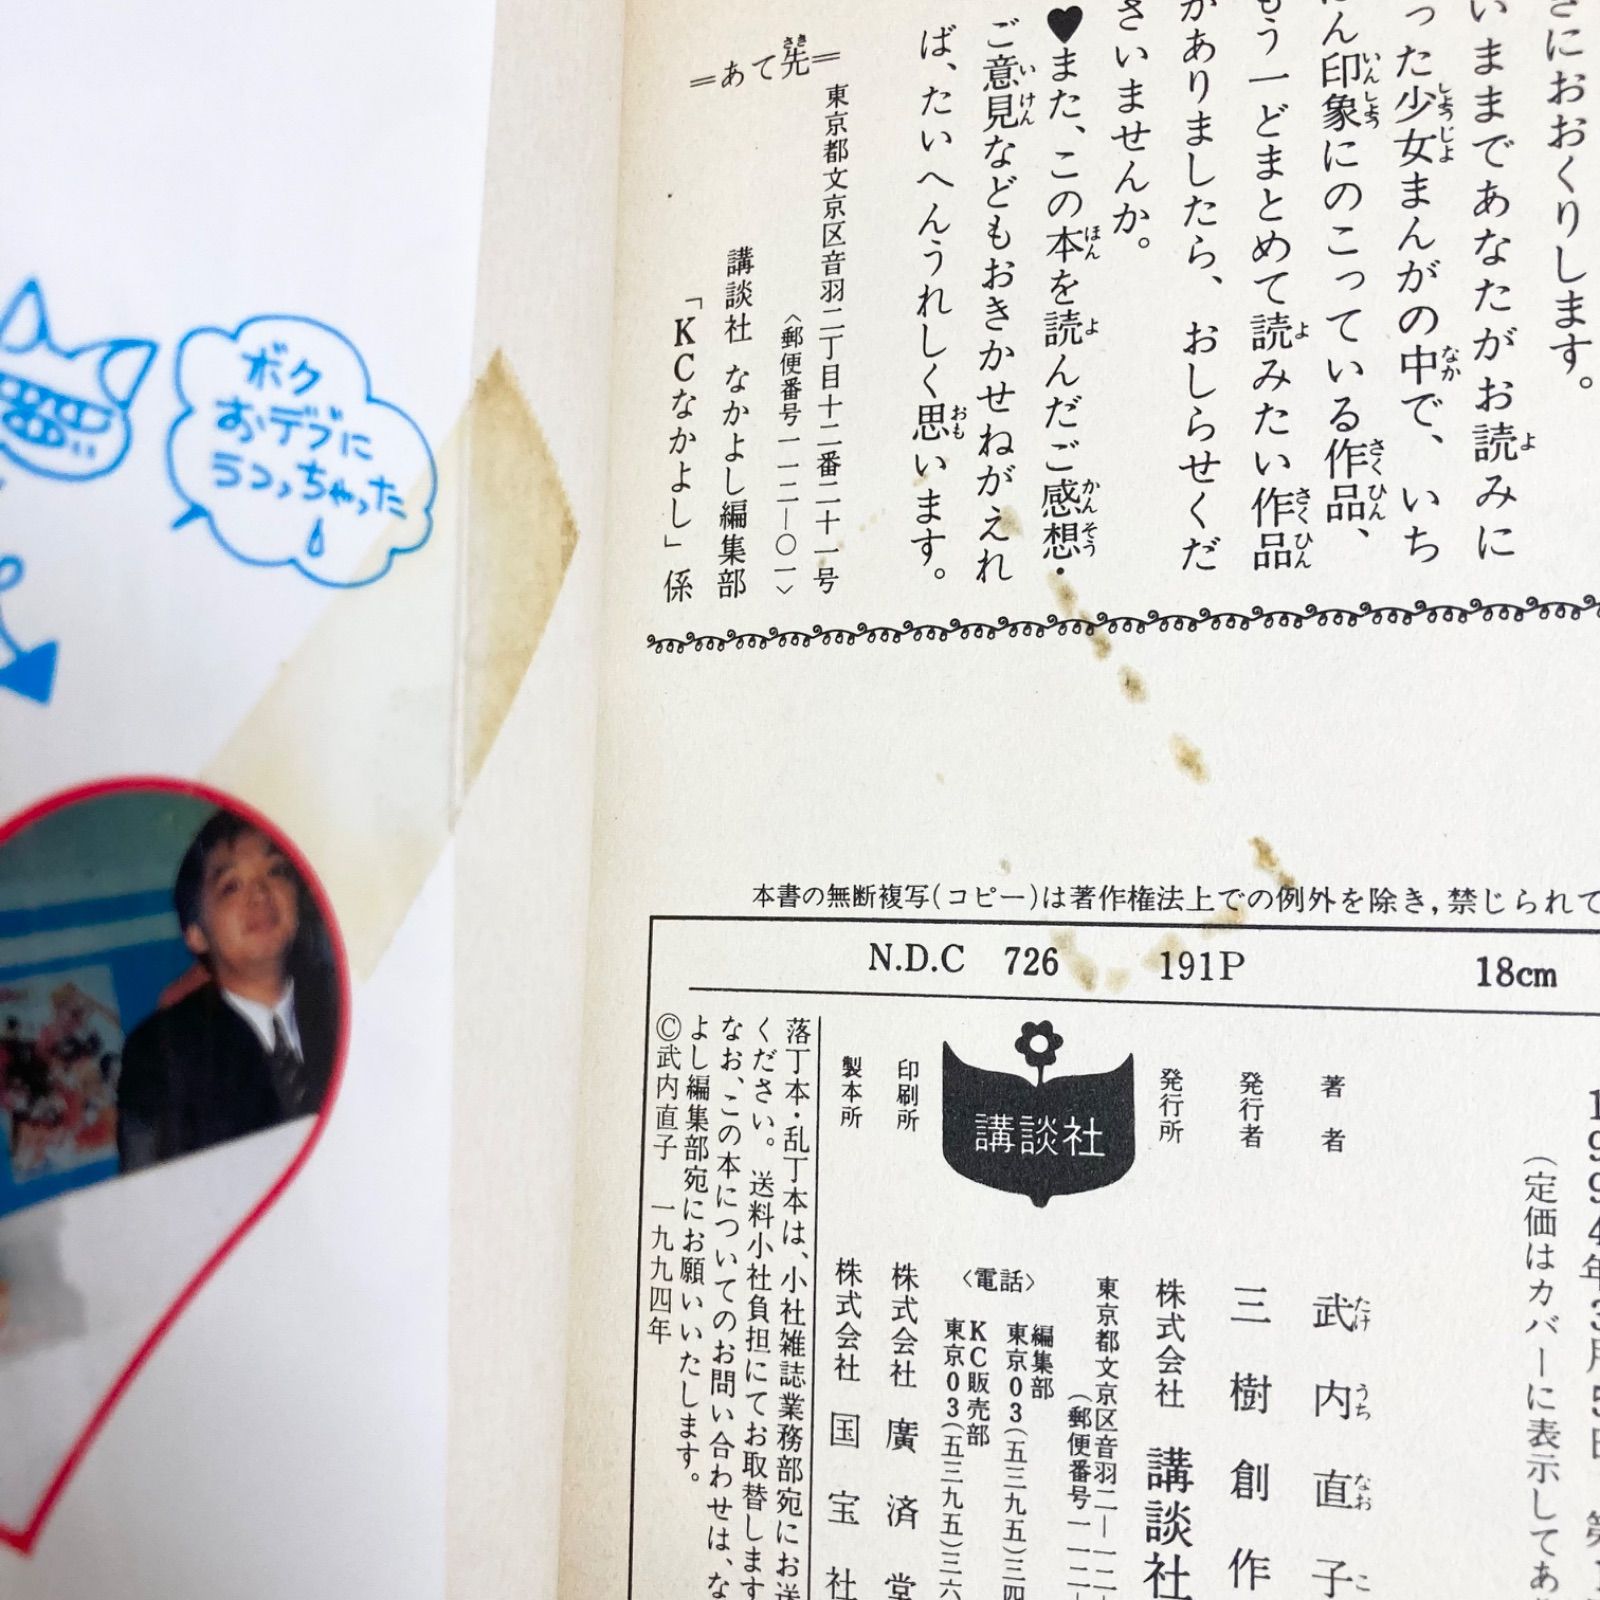 さにおおくりします。
いままであなたがお読みに
った少女まんがの中で、いち
ん印象にのこっている作品、
もう一どまとめて読みたい作品
がありましたら、おしらせくだ
さいませんか。
♥また、この本を読んだご感想・
ご意見などもおきかせねがえれ
ば、たいへんうれしく思います。
=あて先=
東京都文京区音羽二丁目十二番二十一号
〈郵便番号一一二-〇一〉
講談社 なかよし編集部
「KCなかよし」係
ボク
おデブに
うつっちゃった
本書の無断複写(コピー)は著作権法上での例外を除き,禁じられて
N.D.C 726 191P 18cm
1994年3月5日 第
(定価はカバーに表示してあ
著者 武内直子
発行者 三樹創作
発行所 株式会社 講談社
東京都文京区音羽二-一二-
(郵便番号一一二-
〈電話〉
編集部
東京03(五三九五)三四
KC販売部
東京03(五三九五)三六
講談社
印刷所 株式会社 廣済堂
製本所 株式会社 国宝社
落丁本・乱丁本は、小社雑誌業務部宛にお送
ください。送料小社負担にてお取替します
なお、この本についてのお問い合わせは、な
よし編集部宛にお願いいたします。
©武内直子 一九九四年